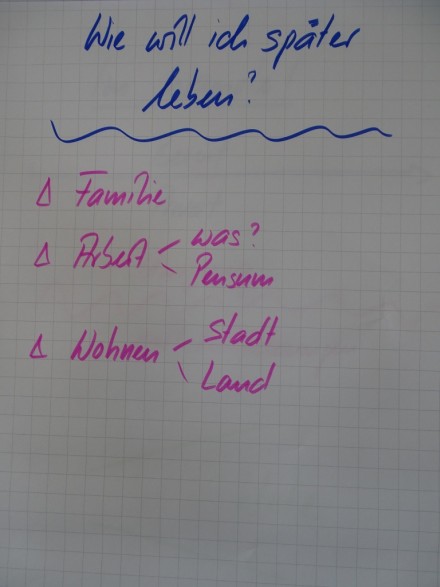 Wie will ich später
leben?
Δ Familie
Δ Arbeit – was?
\ Pensum
Δ Wohnen – Stadt
\ Land